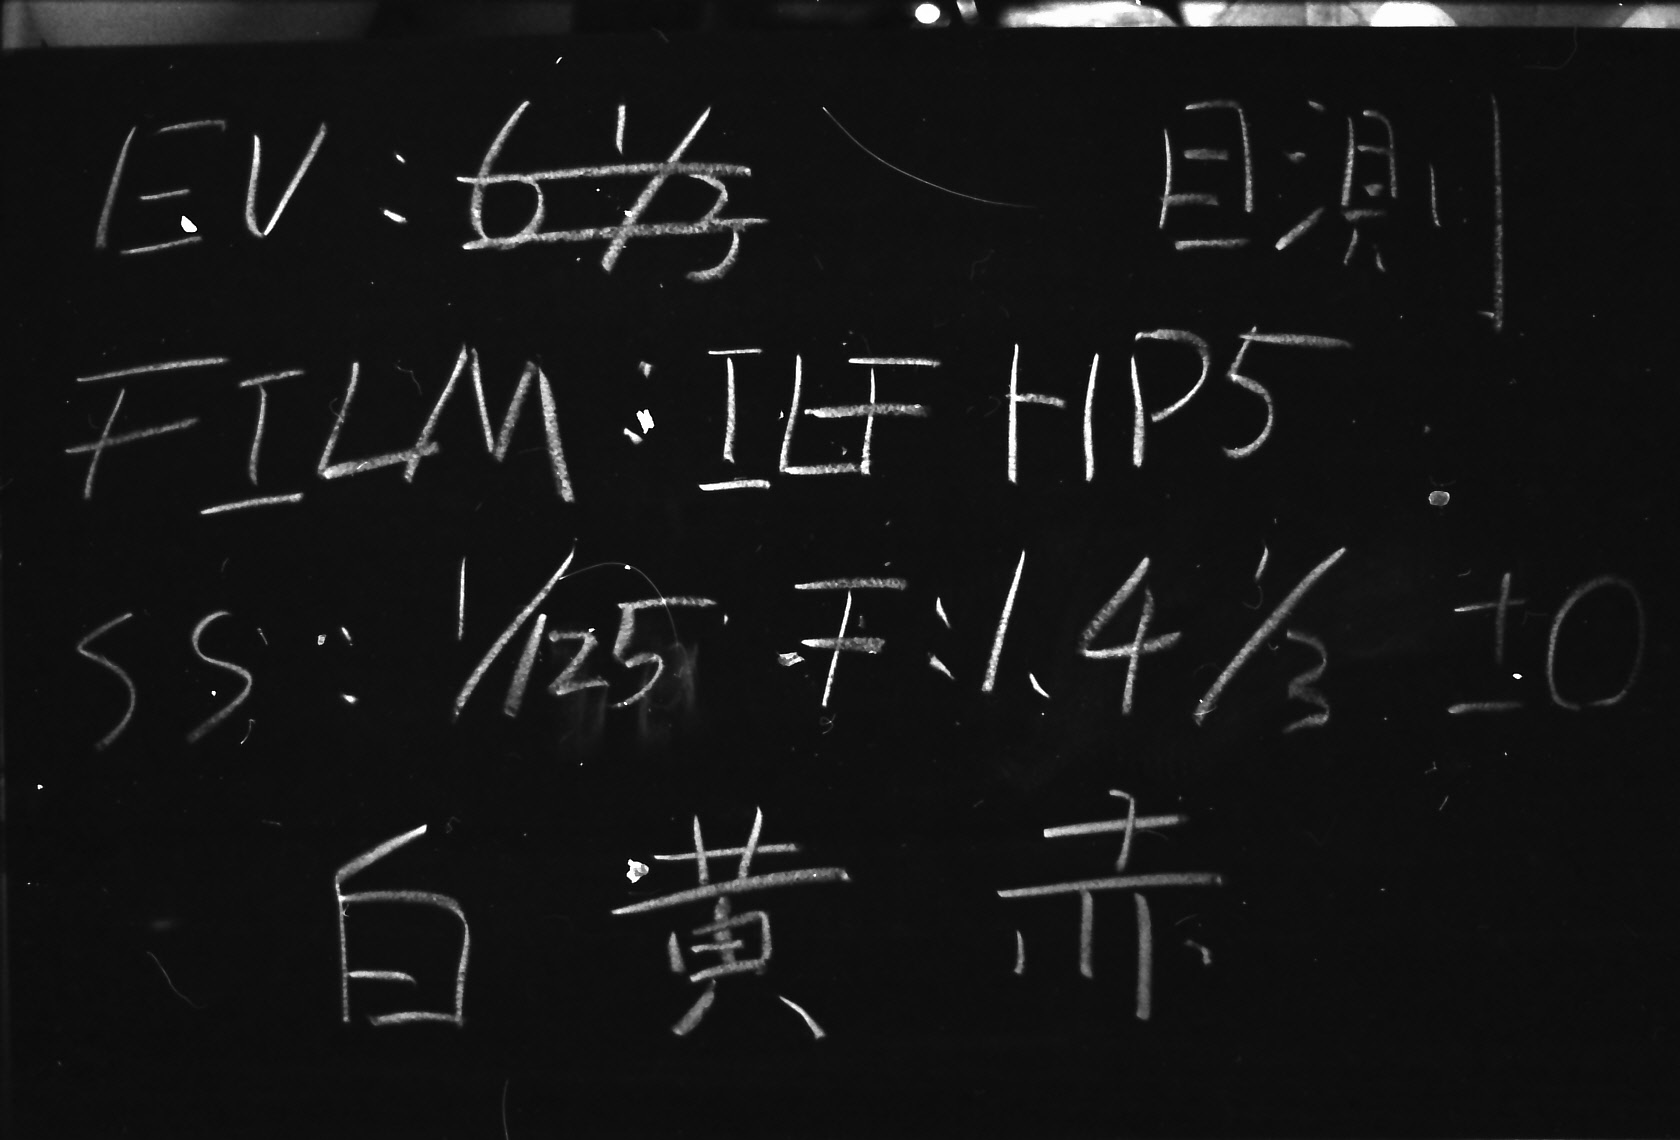 EV: 6 1/3 目測
FILM: ILF HP5
SS: 1/125 F: 1.4 1/3 ±0
白 黄 赤